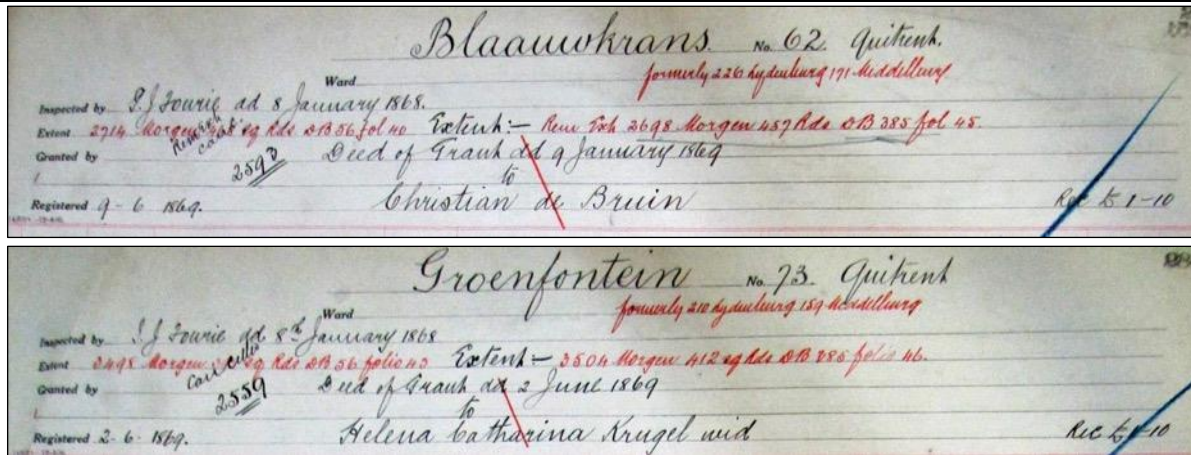 Blaauwkrans. No. 62. Quitrent.
formerly 226 Lydenburg 171 Middelburg
Ward
Inspected by P. J. Fourie dd 8 January 1868.
Extent 2714 Morgen 468 sq Rds DB 56 fol 40 Extent:- Rem Ext 2698 Morgen 457 Rds DB 385 fol 45.
Granted by Deed of Grant dd 9 January 1869
2593
to
Registered 9-6 1869. Christian de Bruin Rec £ 1-10
Groenfontein No. 73. Quitrent
formerly 210 Lydenburg 159 Middelburg
Ward
Inspected by P. J. Fourie dd 8th January 1868
Extent 3498 Morgen sq Rds DB 56 folio 43 Extent:- 3504 Morgen 412 sq Rds DB 385 folio 46.
Cancelled
Granted by Deed of Grant dd 2 June 1869
2559
to
Registered 2-6-1869. Helena Catharina Krugel wid Rec £ 1-10